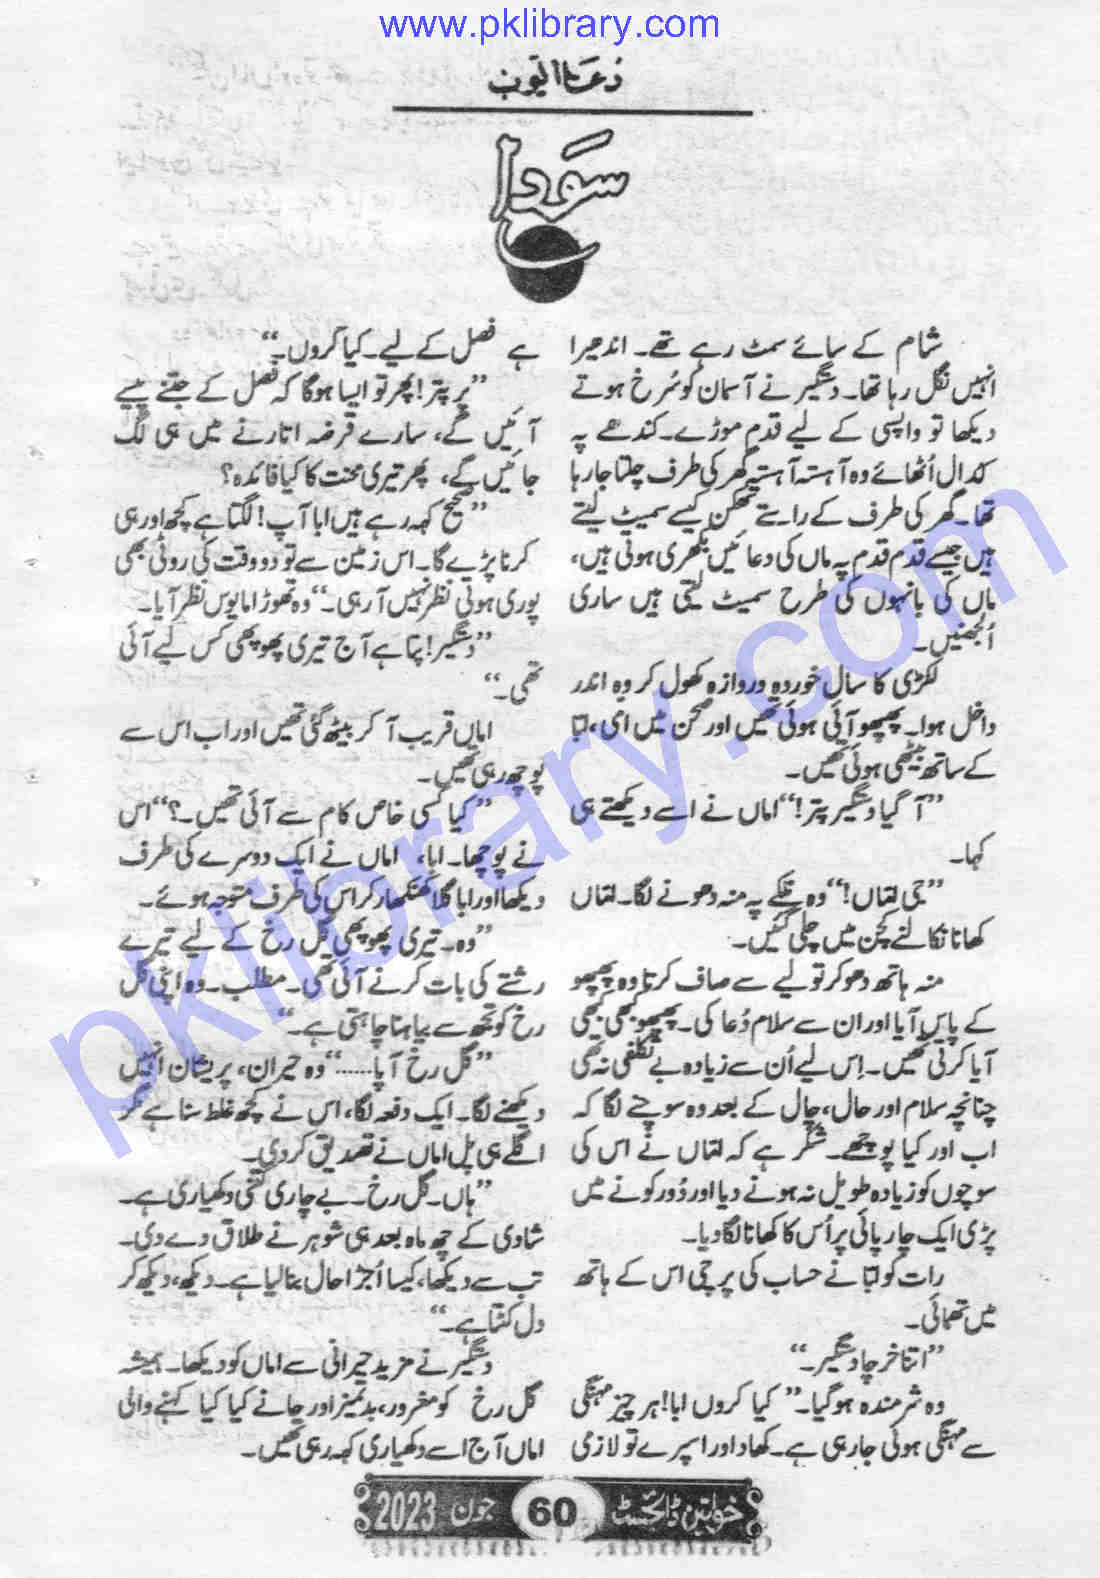 www.pklibrary.com
دُعا ایوب
سودا
شام کے سائے سمٹ رہے تھے۔ اندھیرا
انہیں نگل رہا تھا۔ دستگیر نے آسمان کو سُرخ ہوتے
دیکھا تو واپسی کے لیے قدم موڑے۔ کندھے پہ
کدال اُٹھائے وہ آہستہ آہستہ گھر کی طرف چلتا جا رہا
تھا۔ گھر کی طرف کے راستے تھکن کیسے سمیٹ لیتے
ہیں جیسے قدم قدم پہ ماں کی دعائیں بکھری ہوئی ہیں،
ماں کی بانہوں کی طرح سمیٹ لیتی ہیں ساری
اُلجھنیں۔
لکڑی کا سال خوردہ دروازہ کھول کر وہ اندر
داخل ہوا۔ پھپھو آئی ہوئی تھیں اور صحن میں امی، ابا
کے ساتھ بیٹھی ہوئی تھیں۔
”آ گیا دستگیر پتر!“ اماں نے اسے دیکھتے ہی
کہا۔
”جی اماں!“ وہ نلکے پہ منہ دھونے لگا۔ اماں
کھانا نکالنے کچن میں چلی گئیں۔
منہ ہاتھ دھو کر تولیے سے صاف کرتا وہ پھپھو
کے پاس آیا اور ان سے سلام دُعا کی۔ پھپھو کبھی کبھی
آیا کرتی تھیں۔ اِس لیے اُن سے زیادہ بے تکلفی نہ تھی
چنانچہ سلام اور حال، چال کے بعد وہ سوچنے لگا کہ
اب اور کیا پوچھے۔ شکر ہے کہ اماں نے اس کی
سوچوں کو زیادہ طویل نہ ہونے دیا اور دُور کونے میں
پڑی ایک چارپائی پر اُس کا کھانا لگا دیا۔
رات کو ابا نے حساب کی پرچی اس کے ہاتھ
میں تھمائی۔
”اتنا خرچا دستگیر۔“
وہ شرمندہ ہو گیا۔ ”کیا کروں ابا! ہر چیز مہنگی
سے مہنگی ہوئی جا رہی ہے۔ کھاد اور اسپرے تو لازمی
ہے فصل کے لیے۔ کیا کروں۔“
”پر پتر! پھر تو ایسا ہوگا کہ فصل کے جتنے پیسے
آئیں گے، سارے قرضہ اتارنے میں ہی لگ
جائیں گے، پھر تیری محنت کا کیا فائدہ؟
”صحیح کہہ رہے ہیں ابا آپ! لگتا ہے کچھ اور ہی
کرنا پڑے گا۔ اس زمین سے تو دو وقت کی روٹی بھی
پوری ہوتی نظر نہیں آ رہی۔“ وہ تھوڑا مایوس نظر آیا۔
”دستگیر! پتا ہے آج تیری پھوپھی کس لیے آئی
تھی۔“
اماں قریب آ کر بیٹھ گئی تھیں اور اب اس سے
پوچھ رہی تھیں۔
”کیا کسی خاص کام سے آئی تھیں۔؟“ اس
نے پوچھا۔ ابا، اماں نے ایک دوسرے کی طرف
دیکھا اور ابا گلا کھنکھار کر اس کی طرف متوجہ ہوئے۔
”وہ۔ تیری پھوپھی گل رخ کے لیے تیرے
رشتے کی بات کرنے آئی تھی۔ مطلب۔ وہ اپنی گل
رخ کو تجھ سے بیاہنا چاہتی ہے۔“
”گل رخ آپا......“ وہ حیران، پریشان انہیں
دیکھنے لگا۔ ایک دفعہ لگا، اس نے کچھ غلط سنا ہے مگر
اگلے ہی پل اماں نے تصدیق کر دی۔
”ہاں۔ گل رخ۔ بے چاری کتنی دکھیاری ہے۔
شادی کے چھ ماہ بعد ہی شوہر نے طلاق دے دی۔
تب سے دیکھا، کیسا اُجڑا حال بنا لیا ہے۔ دیکھ، دیکھ کر
دل کٹتا ہے۔“
دستگیر نے مزید حیرانی سے اماں کو دیکھا۔ ہمیشہ
گل رخ کو مغرور، بدتمیز اور جانے کیا کیا کہنے والی
اماں آج اسے دکھیاری کہہ رہی تھیں۔
خواتین ڈائجسٹ 60 جون 2023
pklibrary.com